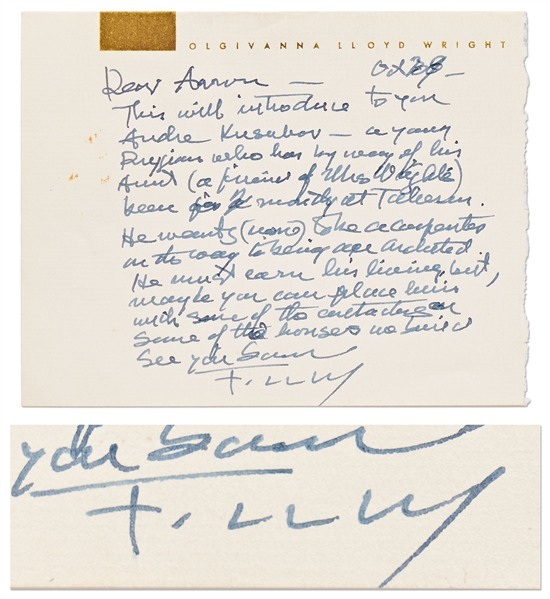 OLGIVANNA LLOYD WRIGHT
Dear Aaron —
This will introduce to you
Andre Kusubov — a young
Russian who has by way of his
Aunt (a friend of Mrs Wright)
been months at Taliesin.
He wants (now) to be a carpenter
on the way to being an architect
He must earn his living but,
maybe you can place him
with some of the contractors on
some of the houses we build
See you soon
F.LL.W
you soon
F.LL.W